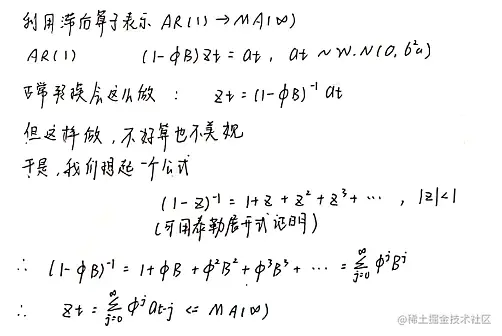 利用滞后算子表示 AR(1)→MA(∞)
AR(1) (1-ϕB)Zt = at, at ~ W.N(0, б²a)
正常形况会这么做: Zt = (1-ϕB)⁻¹ at
但这样做, 不好算也不美观
于是, 我们想起一个公式
(1-z)⁻¹ = 1+z+z²+z³+⋯, |z|<1
(可用泰勒展开式证明)
∴ (1-ϕB)⁻¹ = 1+ϕB+ϕ²B²+ϕ³B³+⋯ = ∑_{j=0}^{∞} ϕ^j B^j
∴ Zt = ∑_{j=0}^{∞} ϕ^j at-j <= MA(∞)
@稀土掘金技术社区